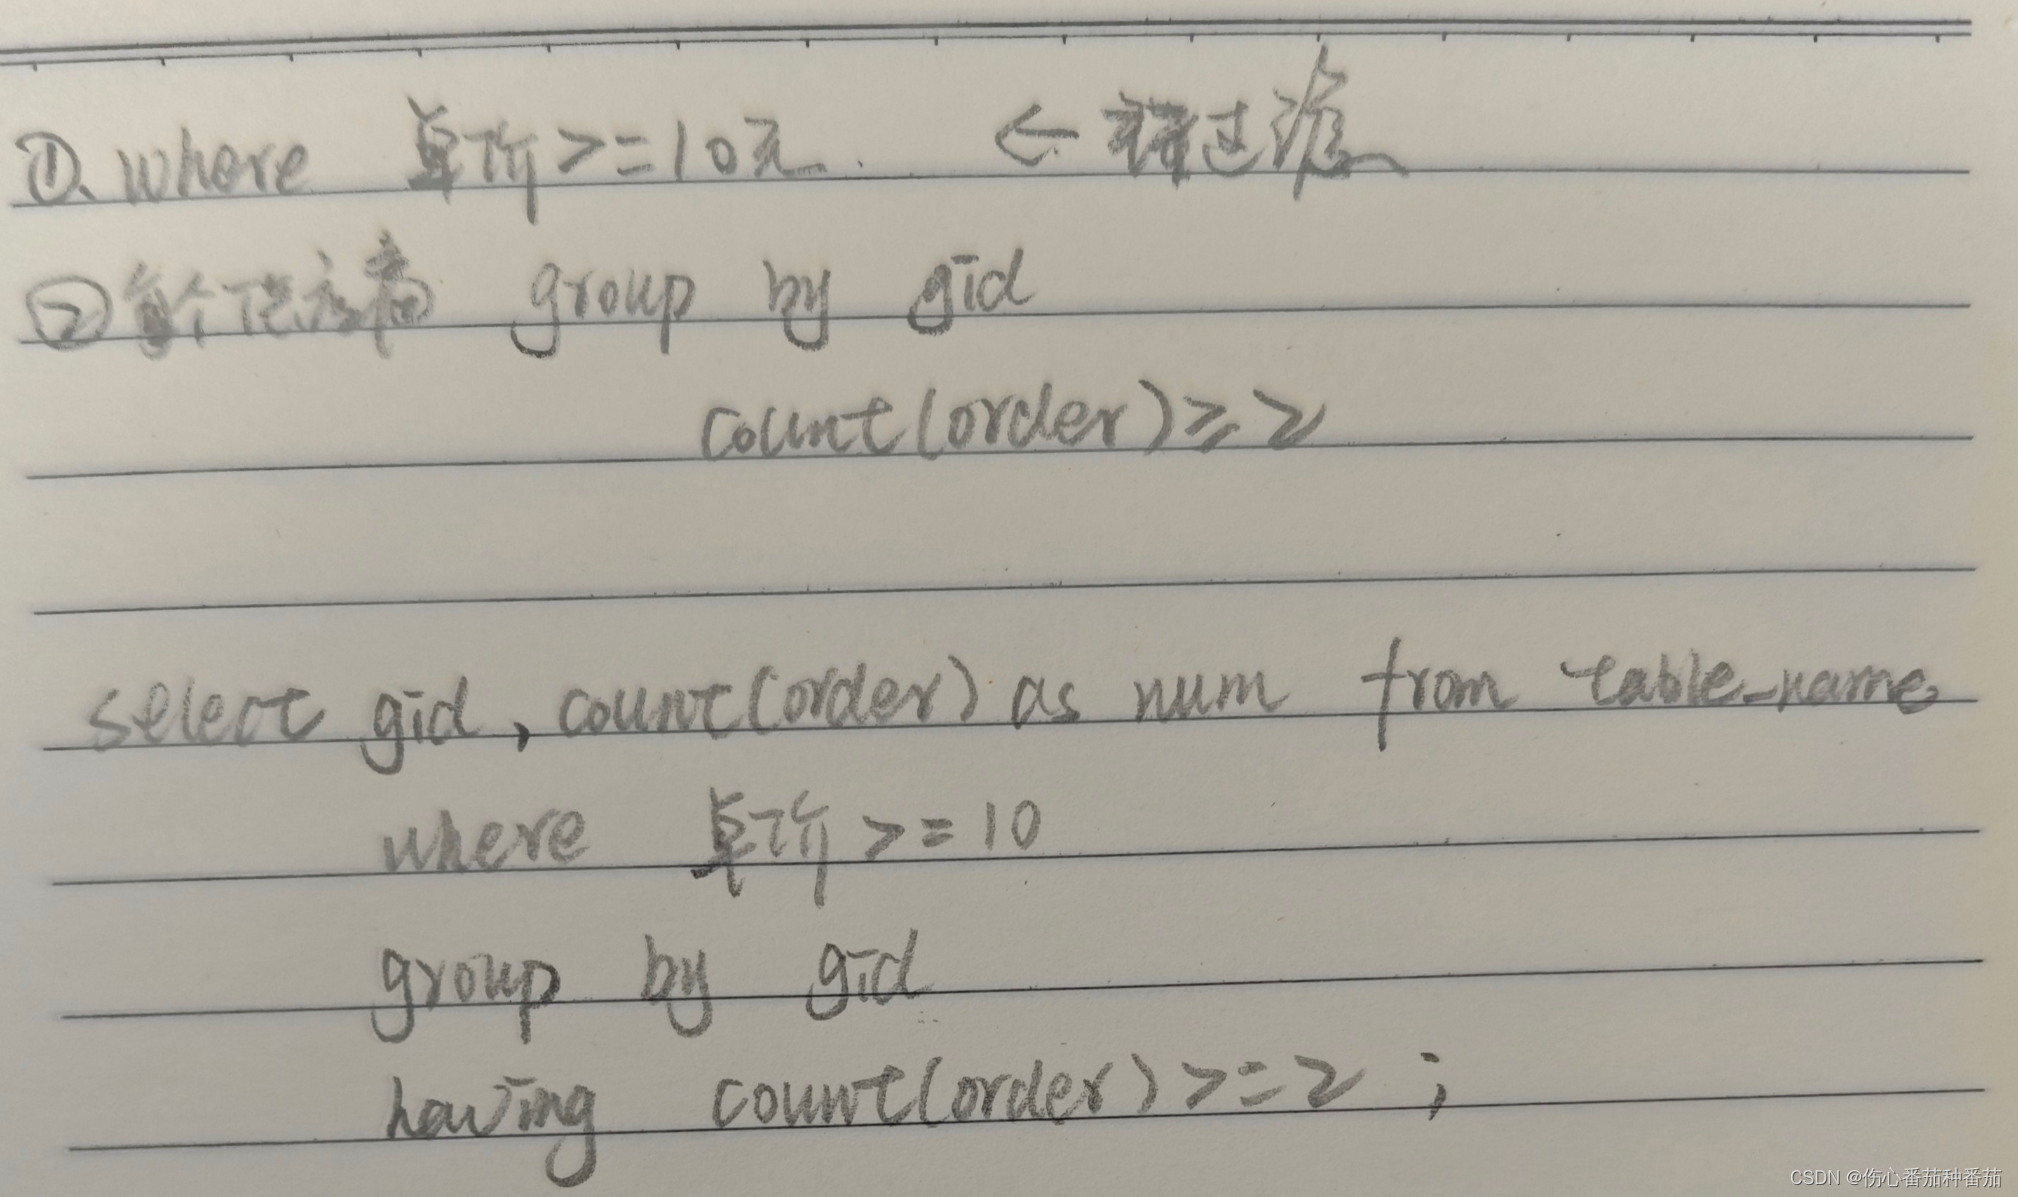 ①. where 单价>=10元. ← 过滤
②每个供应商 group by gid
count(order)≥2
select gid, count(order) as num from table_name
where 单价>=10
group by gid
having count(order)>=2;
CSDN @伤心番茄种番茄